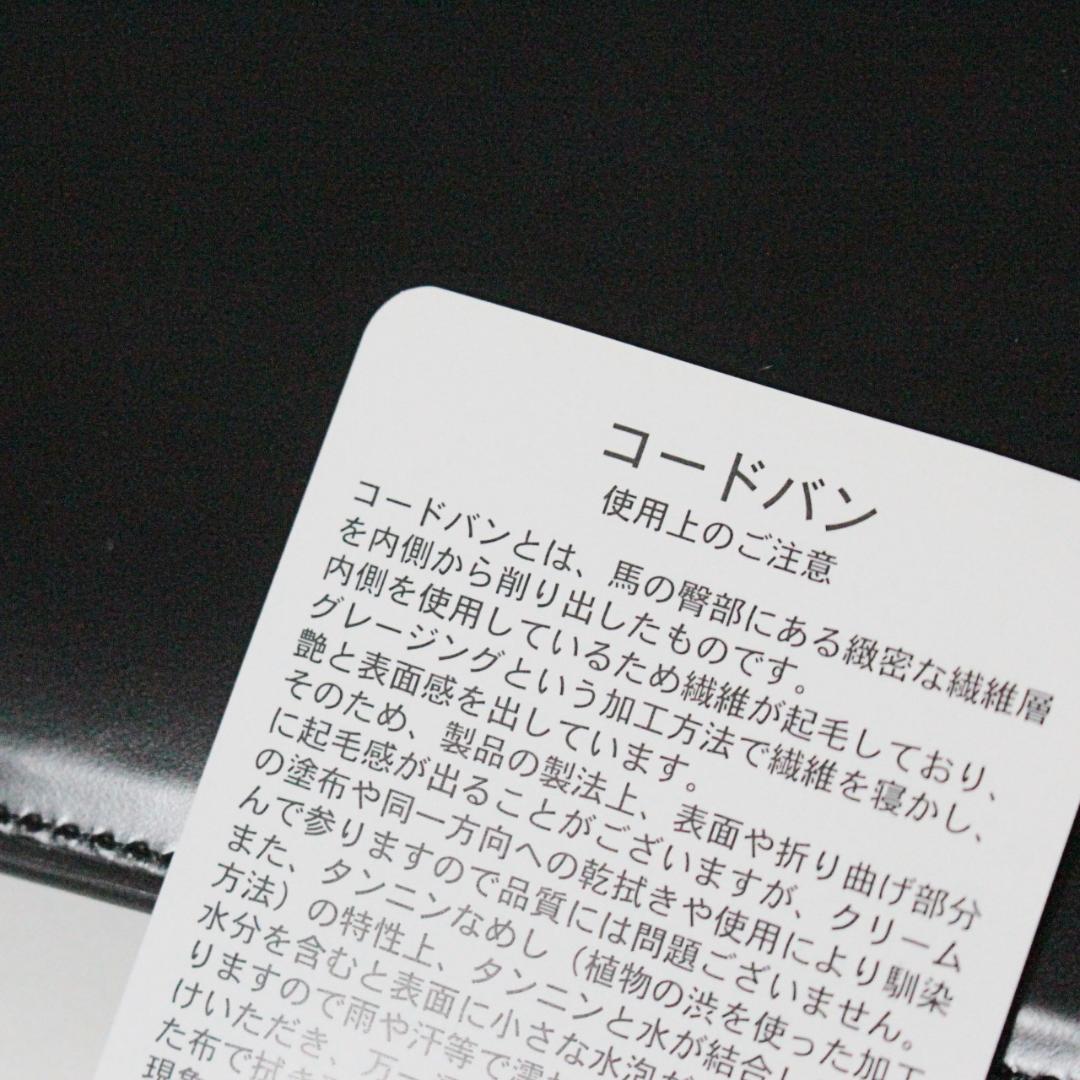 コードバン
使用上のご注意
コードバンとは、馬の臀部にある緻密な繊維層
を内側から削り出したものです。
内側を使用しているため繊維が起毛しており、
グレージングという加工方法で繊維を寝かし、
艶と表面感を出しています。
そのため、製品の製法上、表面や折り曲げ部分
に起毛感が出ることがございますが、クリーム
の塗布や同一方向への乾拭きや使用により馴染
んで参りますので品質には問題ございません。
また、タンニンなめし（植物の渋を使った加工
方法）の特性上、タンニンと水が結合し
水分を含むと表面に小さな水泡が
りますので雨や汗等で濡
けいただき、万一
た布で拭き
現象